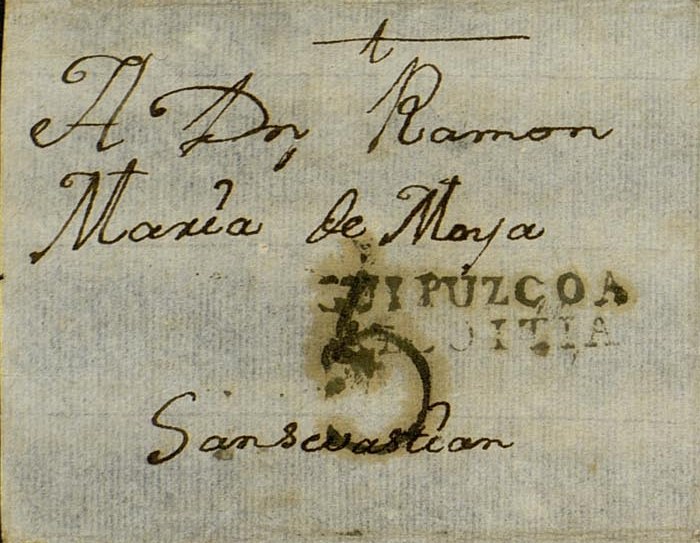 A Dn Ramon
Maria de Moya
GUIPUZCOA
AZCOITIA
5
Sansevastian